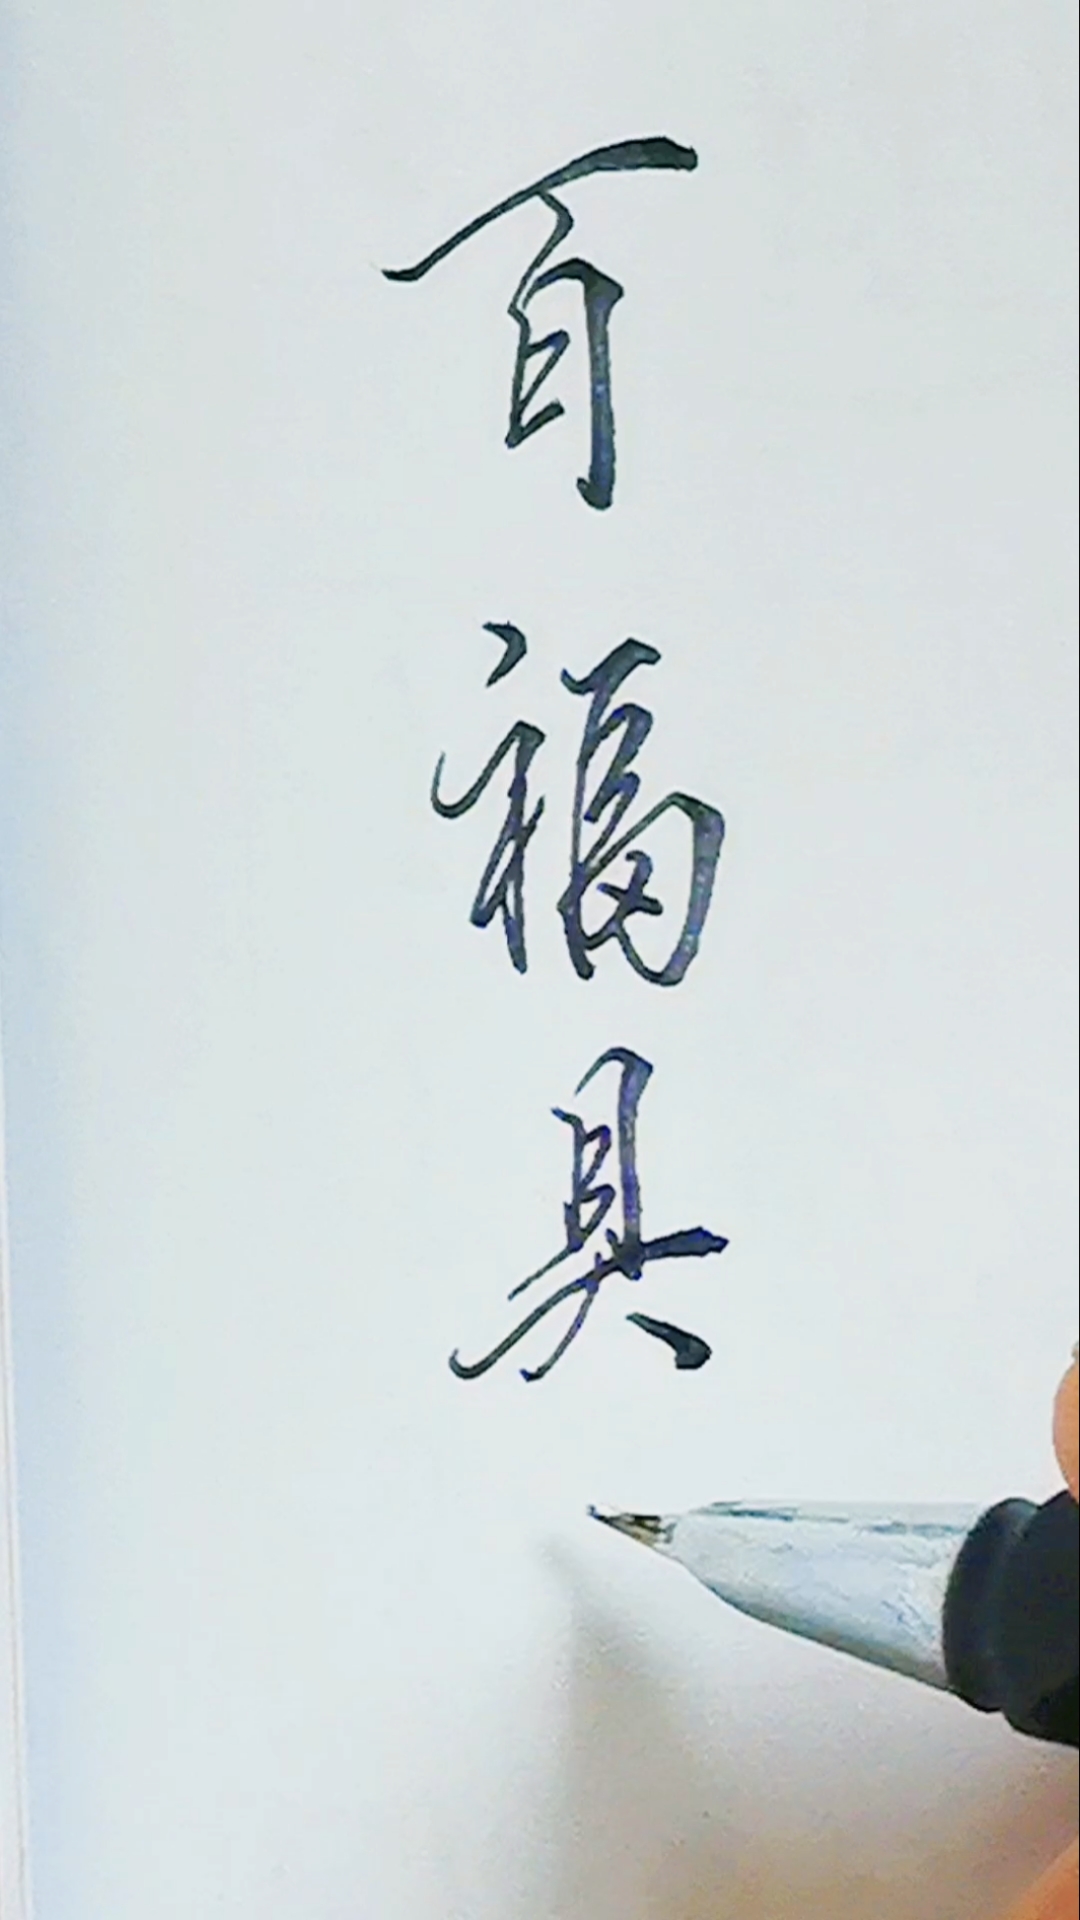 百福具